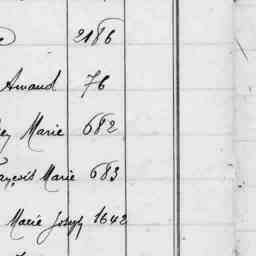 2186
Amand 76
Marie 682
François Marie 683
Marie Joseph 1642